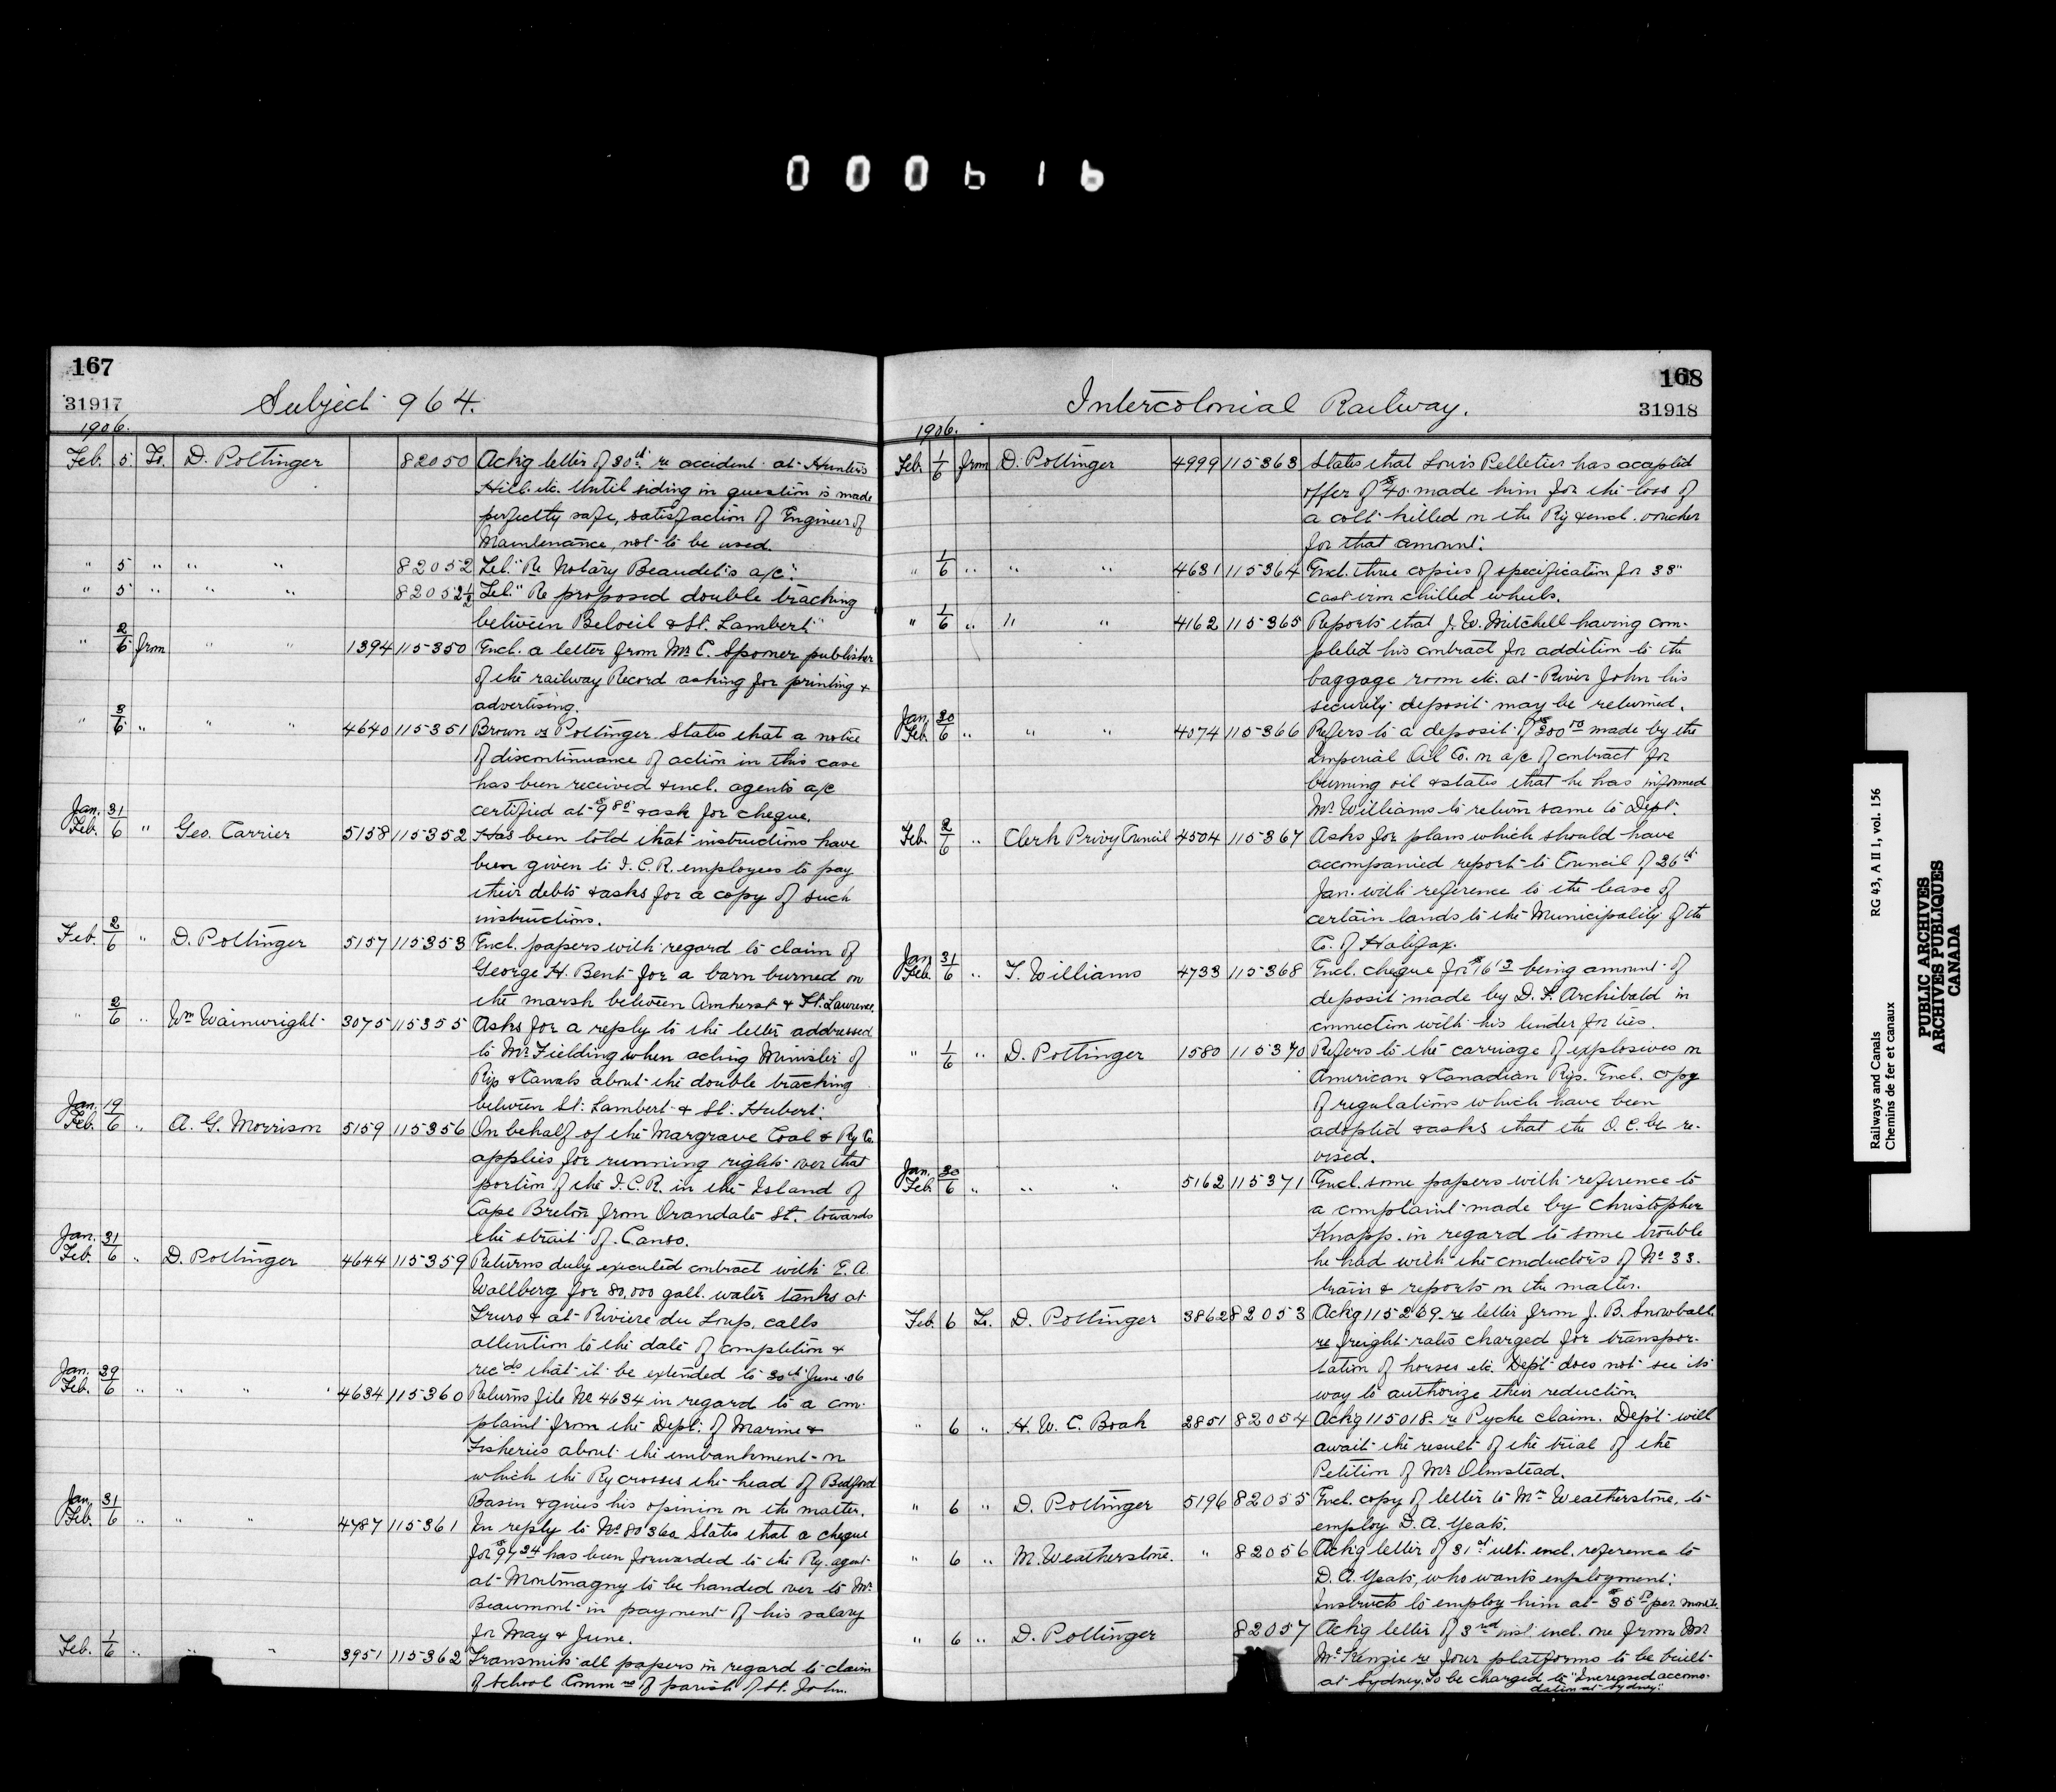 000616
167
31917
Subject 964.
1906.
Feb. 5 To. D. Pottinger 82050 Ackg letter of 30th re accident at Hunter's
Hill etc. Until siding in question is made
perfectly safe, satisfaction of Engineer of
Maintenance, not to be used.
" 5 " " " 82052 Tel. "Re Notary Beaudet's a/c".
" 5 " " " 82052½ Tel. "Re proposed double tracking
between Beloeil & St. Lambert"
" 2/6 from " " 1394 115350 Encl. a letter from Mr. C. Spooner publisher
of the railway Record asking for printing &
advertising.
" 3/6 " " " 4640 115351 Brown vs Pottinger. States that a notice
of discontinuance of action in this case
has been received & encl. agents a/c
certified at $9.80 & ask for cheque.
Jan. 31
Feb. 6 " Geo. Carrier 5158 115352 Has been told that instructions have
been given to I.C.R. employees to pay
their debts & asks for a copy of such
instructions.
Feb. 2/6 " D. Pottinger 5157 115353 Encl. papers with regard to claim of
George H. Bent for a barn burned on
the marsh between Amherst & Ft. Lawrence.
" 2/6 " Wm Wainwright 3075 115355 Asks for a reply to the letter addressed
to Mr. Fielding when acting Minister of
Rys & Canals about the double tracking
between St. Lambert & St. Hubert.
Jan. 19
Feb. 6 " A. G. Morrison 5159 115356 On behalf of the Margrave Coal & Ry Co.
applies for running rights over that
portion of the I.C.R. in the Island of
Cape Breton from Orandale St. towards
the strait of Canso.
Jan. 31
Feb. 6 " D. Pottinger 4644 115359 Returns duly executed contract with E. A.
Wallberg for 80,000 gall. water tanks at
Truro & at Riviere du Loup, calls
attention to the date of completion &
rec'ds that it be extended to 30th June 06
Jan. 29
Feb. 6 " " " 4634 115360 Returns file No 4634 in regard to a com-
plaint from the Dept. of Marine &
Fisheries about the embankment on
which the Ry crosses the head of Bedford
Basin & gives his opinion on the matter.
Jan. 31
Feb. 6 " " " 4787 115361 In reply to No 80360 States that a cheque
for $97.34 has been forwarded to the Ry. agent
at Montmagny to be handed over to Mr.
Beaumont in payment of his salary
for May & June.
Feb. 1/6 " " " 3951 115362 Transmits all papers in regard to claim
of School Commrs of parish of St. John.
168
31918
Intercolonial Railway.
1906.
Feb. 1/6 from D. Pottinger 4999 115363 States that Louis Pelletier has accepted
offer of $40. made him for the loss of
a colt killed on the Ry & encl. voucher
for that amount.
" 1/6 " " " 4631 115364 Encl. three copies of specification for 33"
cast iron chilled wheels.
" 1/6 " " " 4162 115365 Reports that J. W. Mitchell having com-
pleted his contract for addition to the
baggage room etc. at River John his
security deposit may be returned.
Jan. 30
Feb. 6 " " " 4074 115366 Refers to a deposit of $200.00 made by the
Imperial Oil Co. on a/c of contract for
burning oil & states that he has informed
Mr. Williams to return same to Dept.
Feb. 2/6 " Clerk Privy Council 4504 115367 Asks for plans which should have
accompanied report to Council of 26th
Jan. with reference to the lease of
certain lands to the Municipality of the
Co. of Halifax.
Jan. 31
Feb. 6 " T. Williams 4733 115368 Encl. cheque for $16.13 being amount of
deposit made by D. F. Archibald in
connection with his tender for ties.
" 1/6 " D. Pottinger 1580 115370 Refers to the carriage of explosives on
American & Canadian Rys. Encl. copy
of regulations which have been
adopted & asks that the O. C. be re-
vised.
Jan. 30
Feb. 6 " " " 5162 115371 Encl. some papers with reference to
a complaint made by Christopher
Knapp. in regard to some trouble
he had with the conductors of No 33.
train & reports on the matter.
Feb. 6 To. D. Pottinger 3862 82053 Ackg 115269 re letter from J. B. Snowball
re freight rates charged for transpor-
tation of horses etc. Dept does not see its
way to authorize their reduction.
" 6 " H. W. C. Boak 2851 82054 Ackg 115018 re Pyche claim. Dept will
await the result of the trial of the
Petition of Mr. Olmstead.
" 6 " D. Pottinger 5196 82055 Encl. copy of letter to Mr. Weatherstone, to
employ D. A. Yeats.
" 6 " M. Weatherstone. " 82056 Ackg letter of 31st ult. encl. reference to
D. A. Yeats, who wants employment.
Instructs to employ him at $35.00 per month.
" 6 " D. Pottinger 82057 Ackg letter of 3rd inst. encl. one from Mr
McKenzie re four platforms to be built
at Sydney. To be charged to "Increased accomo-
dation at Sydney."
Railways and Canals RG 43, A II 1, vol. 156
Chemins de fer et canaux
PUBLIC ARCHIVES
ARCHIVES PUBLIQUES
CANADA